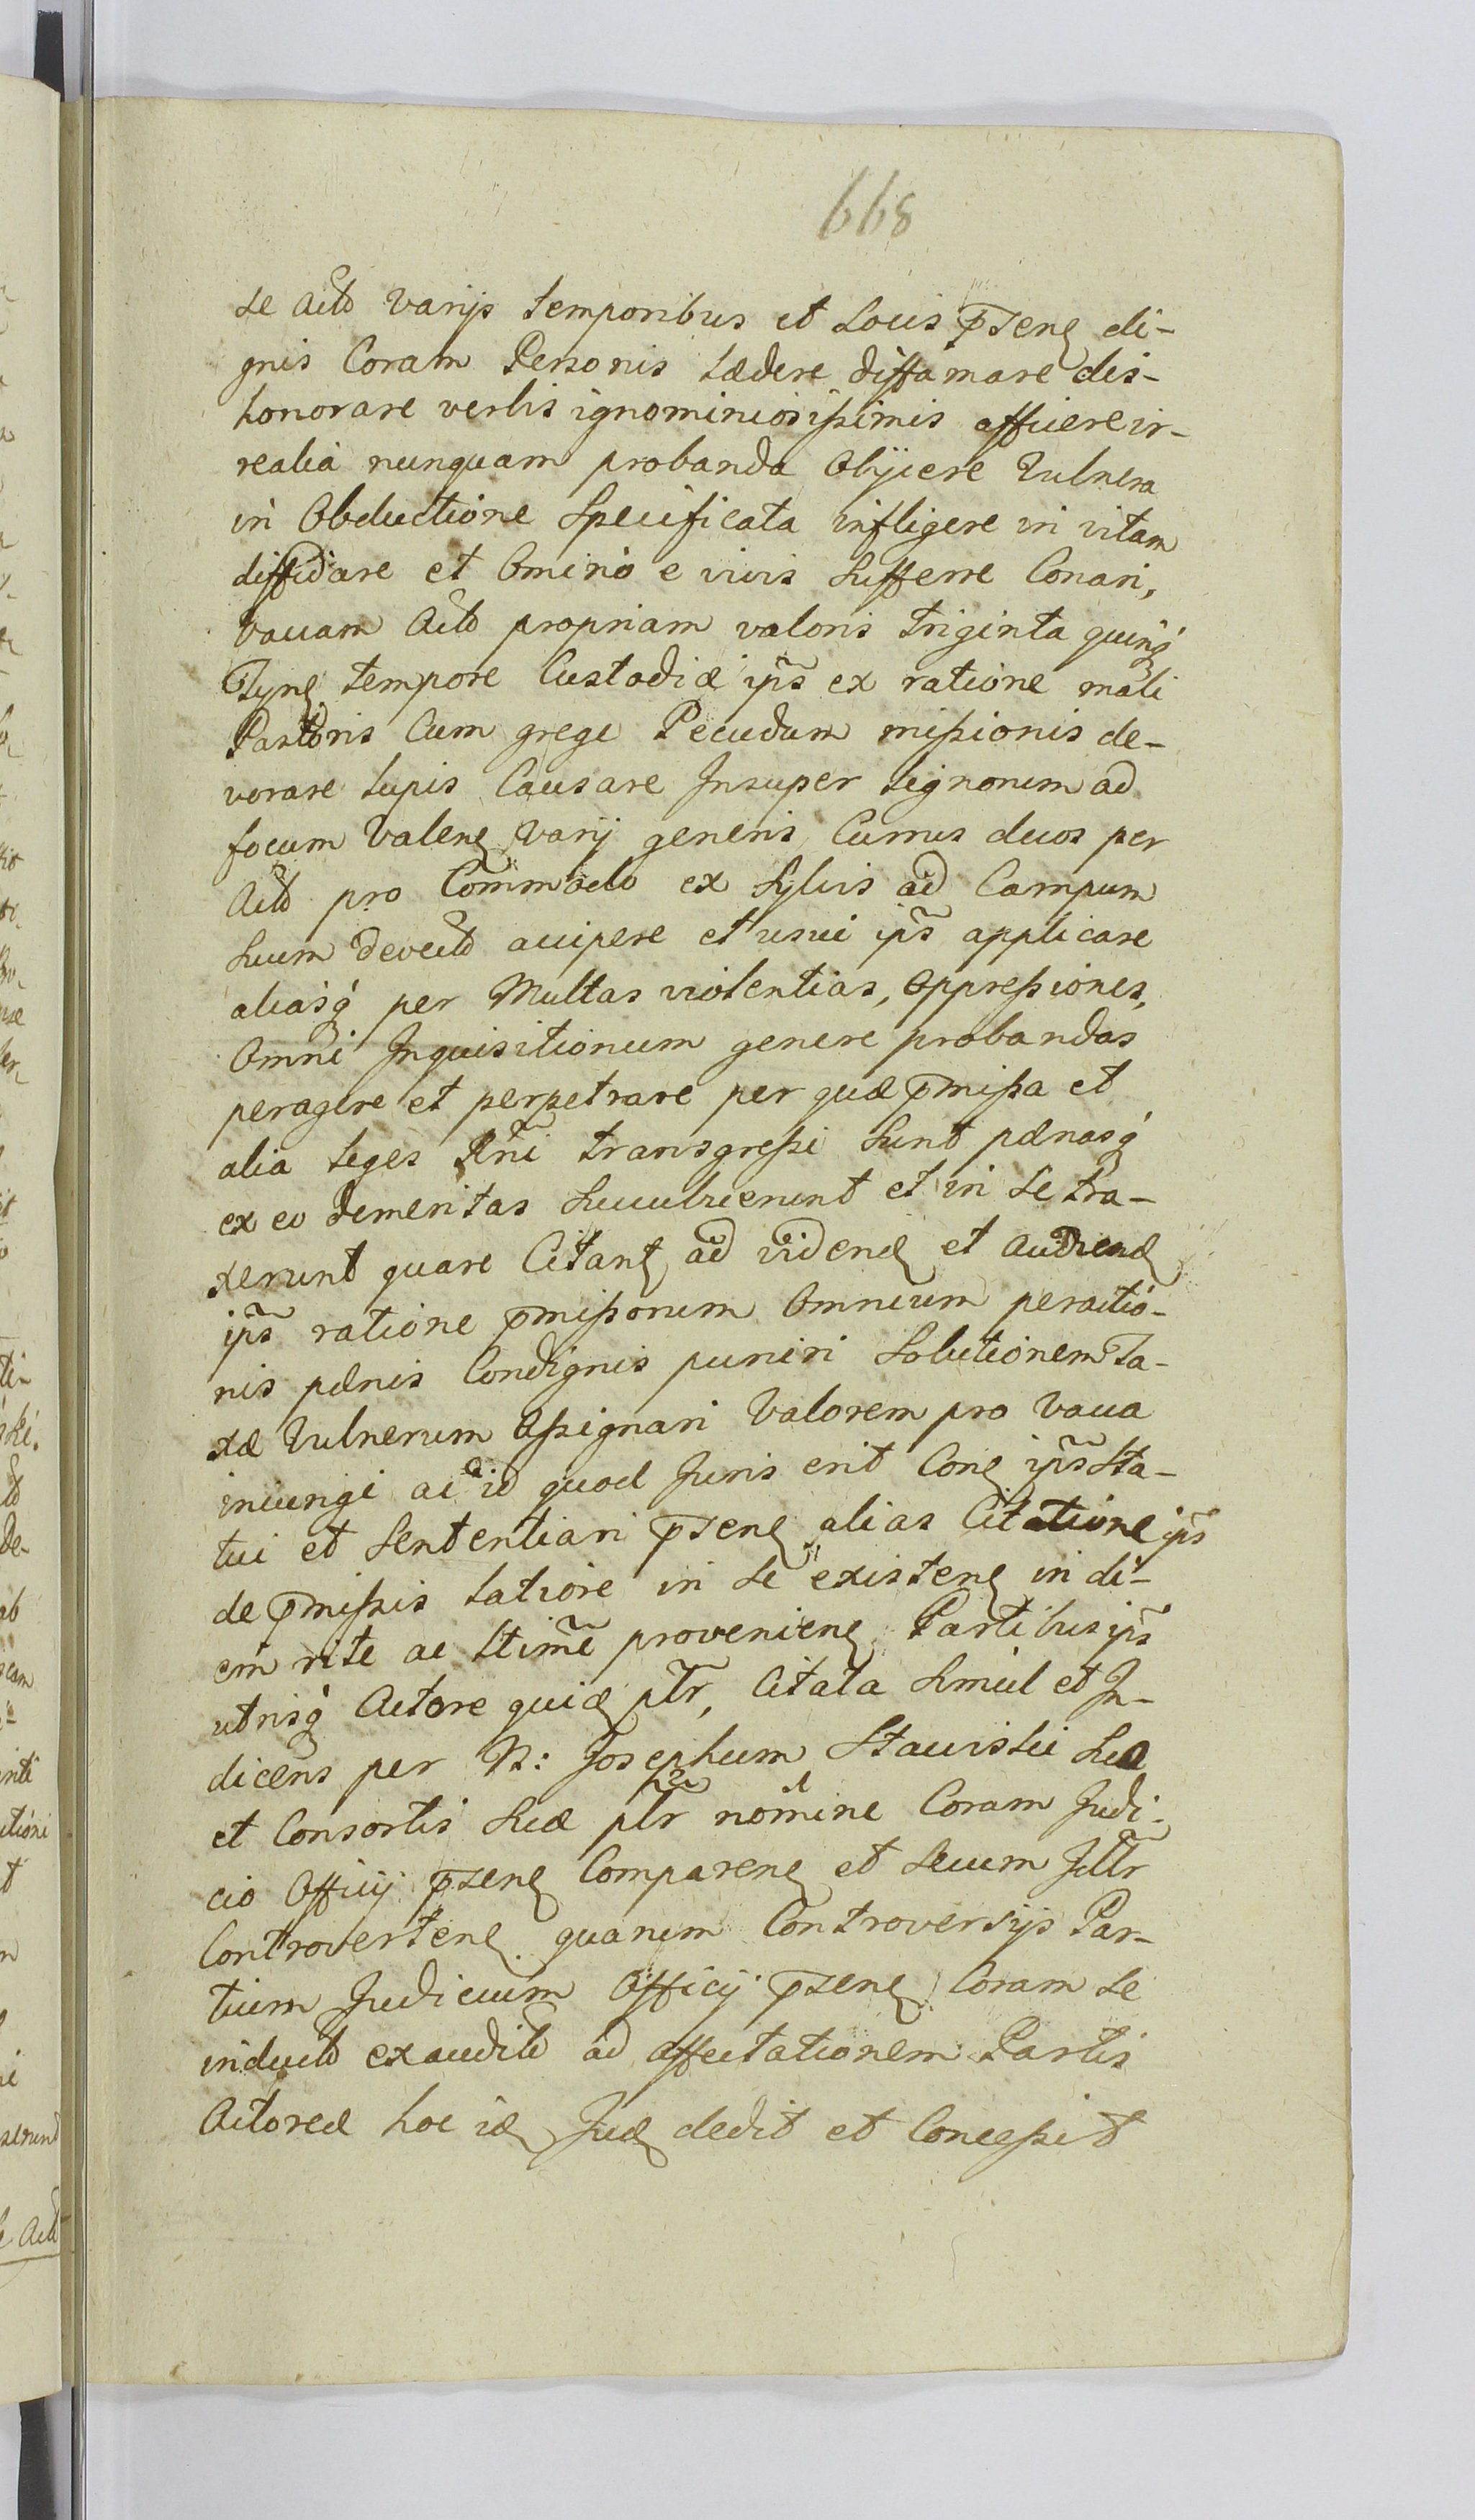 668
se Actõ varijs temporibus et Locis p̄sene di-
gnis Coram Personis Lædere diffamare des-
honorare verbis ignominiosissimis afficere ir-
realia nunquam probanda Obijcere Vulnera
in Obductione Specificata infligere in vitam
diffidare et Omino e vivis Sufferre Conari,
Vaccam Actõ propriam valoris triginta quinq́
Tyne tempore Custodiæ ip̃s ex ratione mali
Pastoris Cum grege Pecudum missionis de-
vorare Lupis Causare Insuper Lignorum ad
focum Valene Varij generis Currus duos per
Actõ pro Commodo ex Sylvis ad Campum
Suum devectõ accipere et usui ip̃s applicare
aliasq́ per Multas violentias, Oppressiones,
Omni Inquisitionum genere probandas
peragere et perpetrare per quæ p̄missa et
alia Leges Rñi transgressi Sunt pænasq́
ex eo demeritas Succubuerunt et in Se tra-
xerunt quare Citant ad videnđ et Audienđ
ip̃s ratione p̄missorum Omnium peractio-
nis pænis Condignis puniri Solutionem Ta-
xæ Vulnerum Assignari Valorem pro Vacca
iniungi ac id quod Juris erit Cone ip̃s Sta-
tui et Sententiari p̄sene alias Citatione ip̃s
de p̄missis Latiore in Se existene in di-
em rite ac Ltime proveniene Partibus ip̃s
utrisq́ Actore quiđ pltr, Citata Simul et In-
dicens per N: Josephum Stawiski Suo
et Consortis Suæ pltr nomine Coram Judi-
cio Officij p̄sene Comparene et Secum Jttr
Controvertene quarum Controversijs Par-
tium Judicium Officij p̄sene Coram Se
inductõ exauditõ ad affectationem Partis
Actoreæ hoc iđ Juđ dedit et Concessit